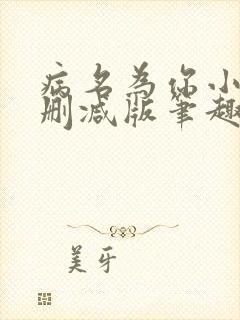 病名为你小
删减版笔趣
美牙